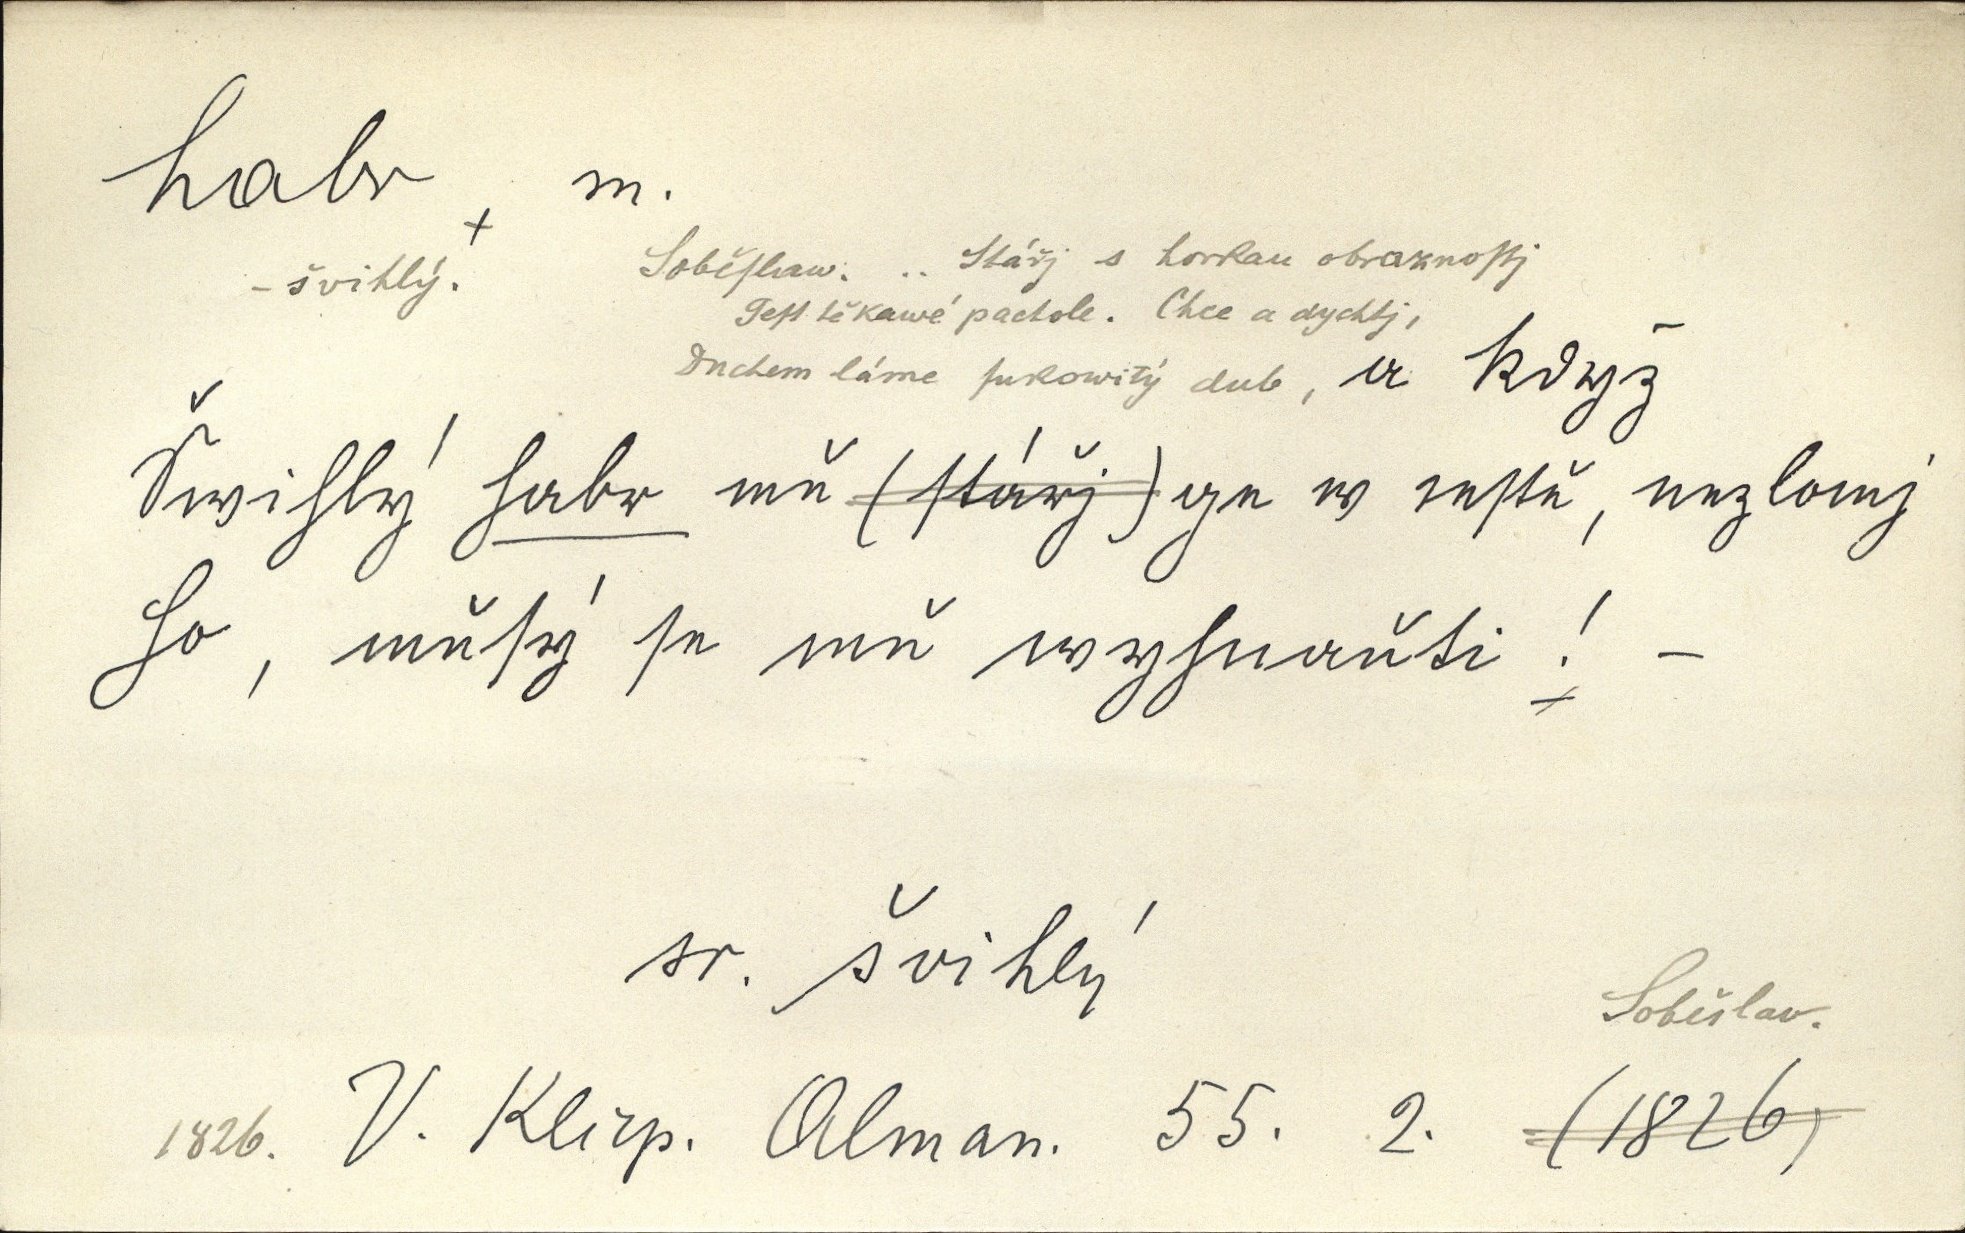 habr, m.
– švihlý. +
Soběſlaw. .. Stářj s horkau obraznoſtj
Geſt těkawé pachole. Chce a dychtj,
Duchem láme ſukowitý dub, a když
Šwihlý habr mu̇ (ſtářj) ge w ceſtě, nezlomj
ho, muſý ſe mu wyhnauti! –
+
sr. švihlý
Soběslav.
1826. V. Klicp. Alman. 55. 2. (1826)